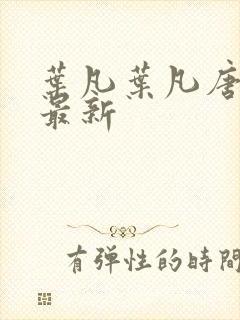 葉凡葉凡唐
最新
有弹性的時間